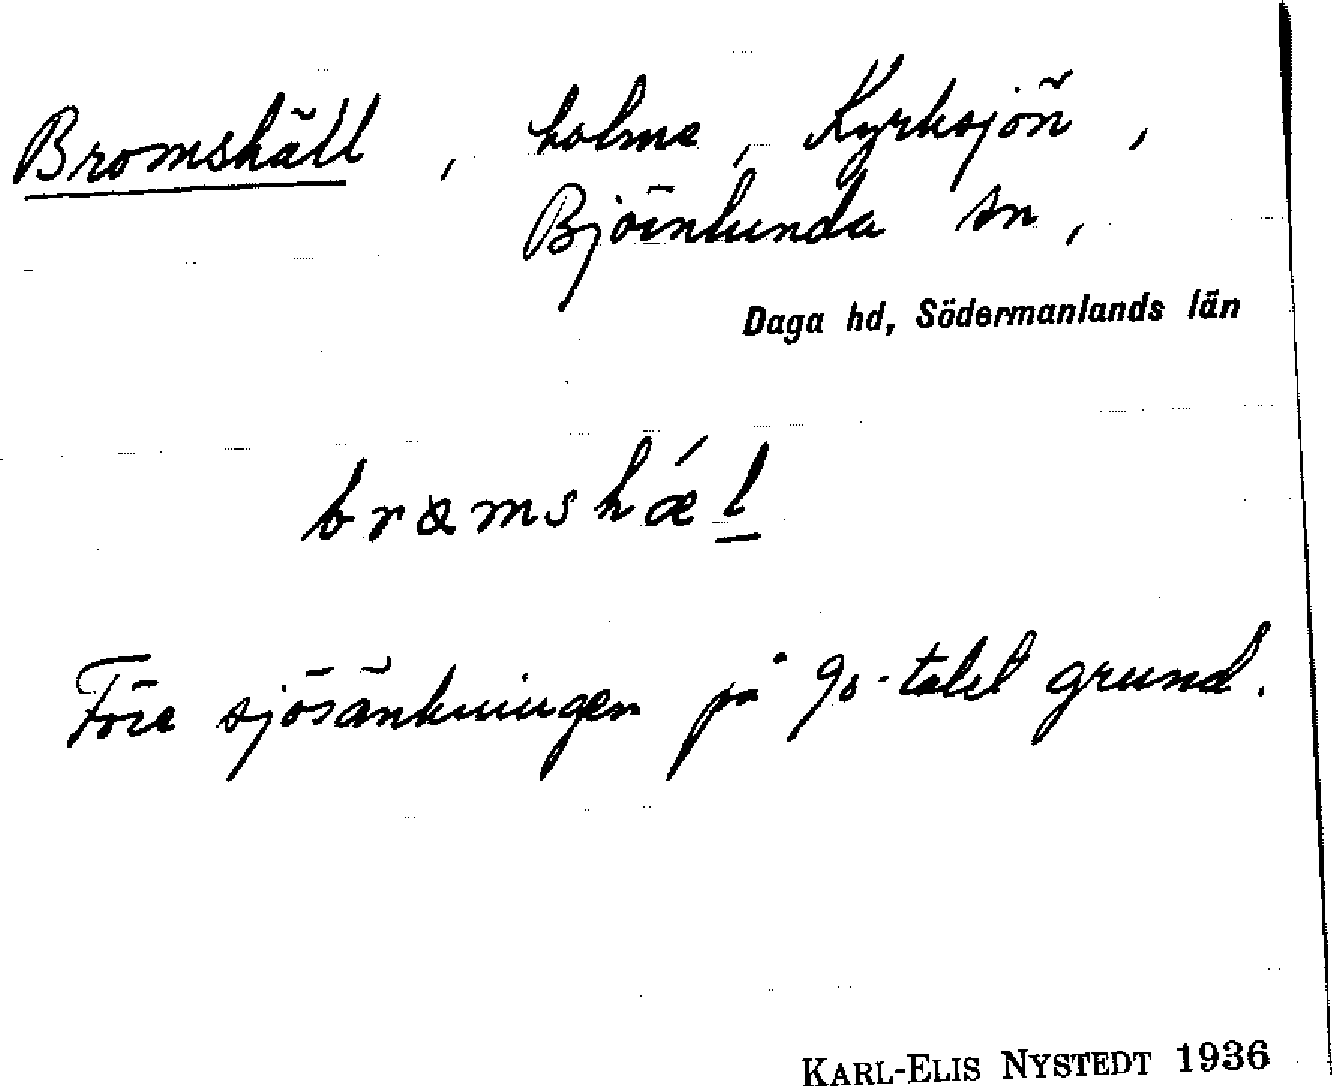 Bromshäll, holme, Kyrksjön,
Björnlunda sn,
Daga hd, Södermanlands län
bramshǽl
Före sjösänkningen på 90-talet grund.
KARL-ELIS NYSTEDT 1936